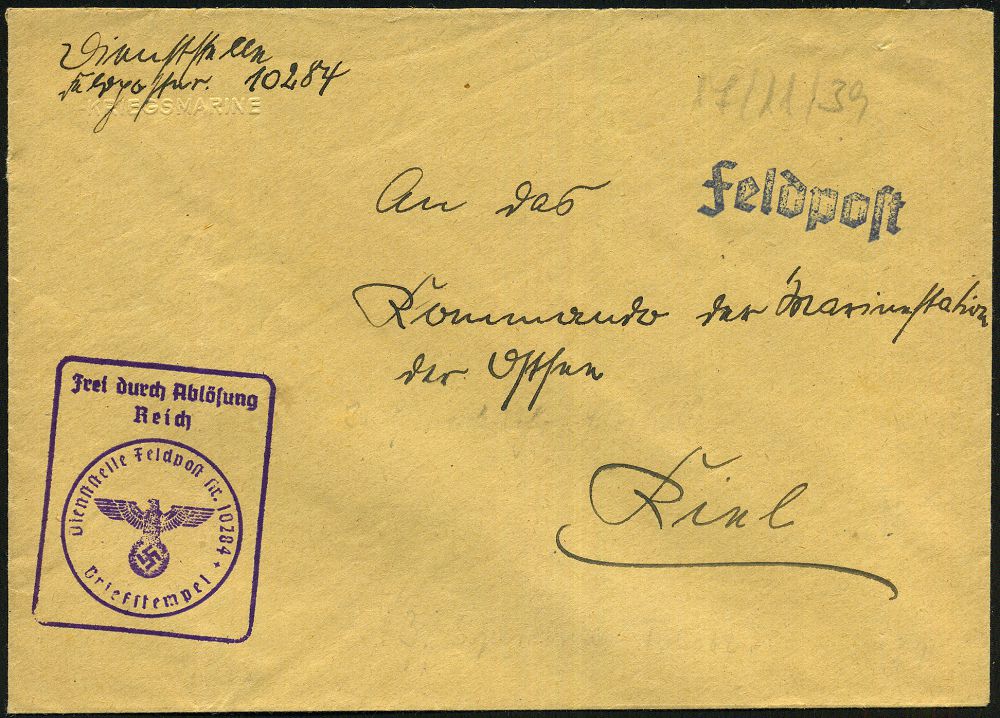 Dienststelle
Feldpostnr. 10284
KRIEGSMARINE
17/11/39
Feldpost
An das
Kommando der Marinestation
der Ostsee
Kiel
Frei durch Ablösung
Reich
Dienststelle Feldpost Nr. 10284
Briefstempel